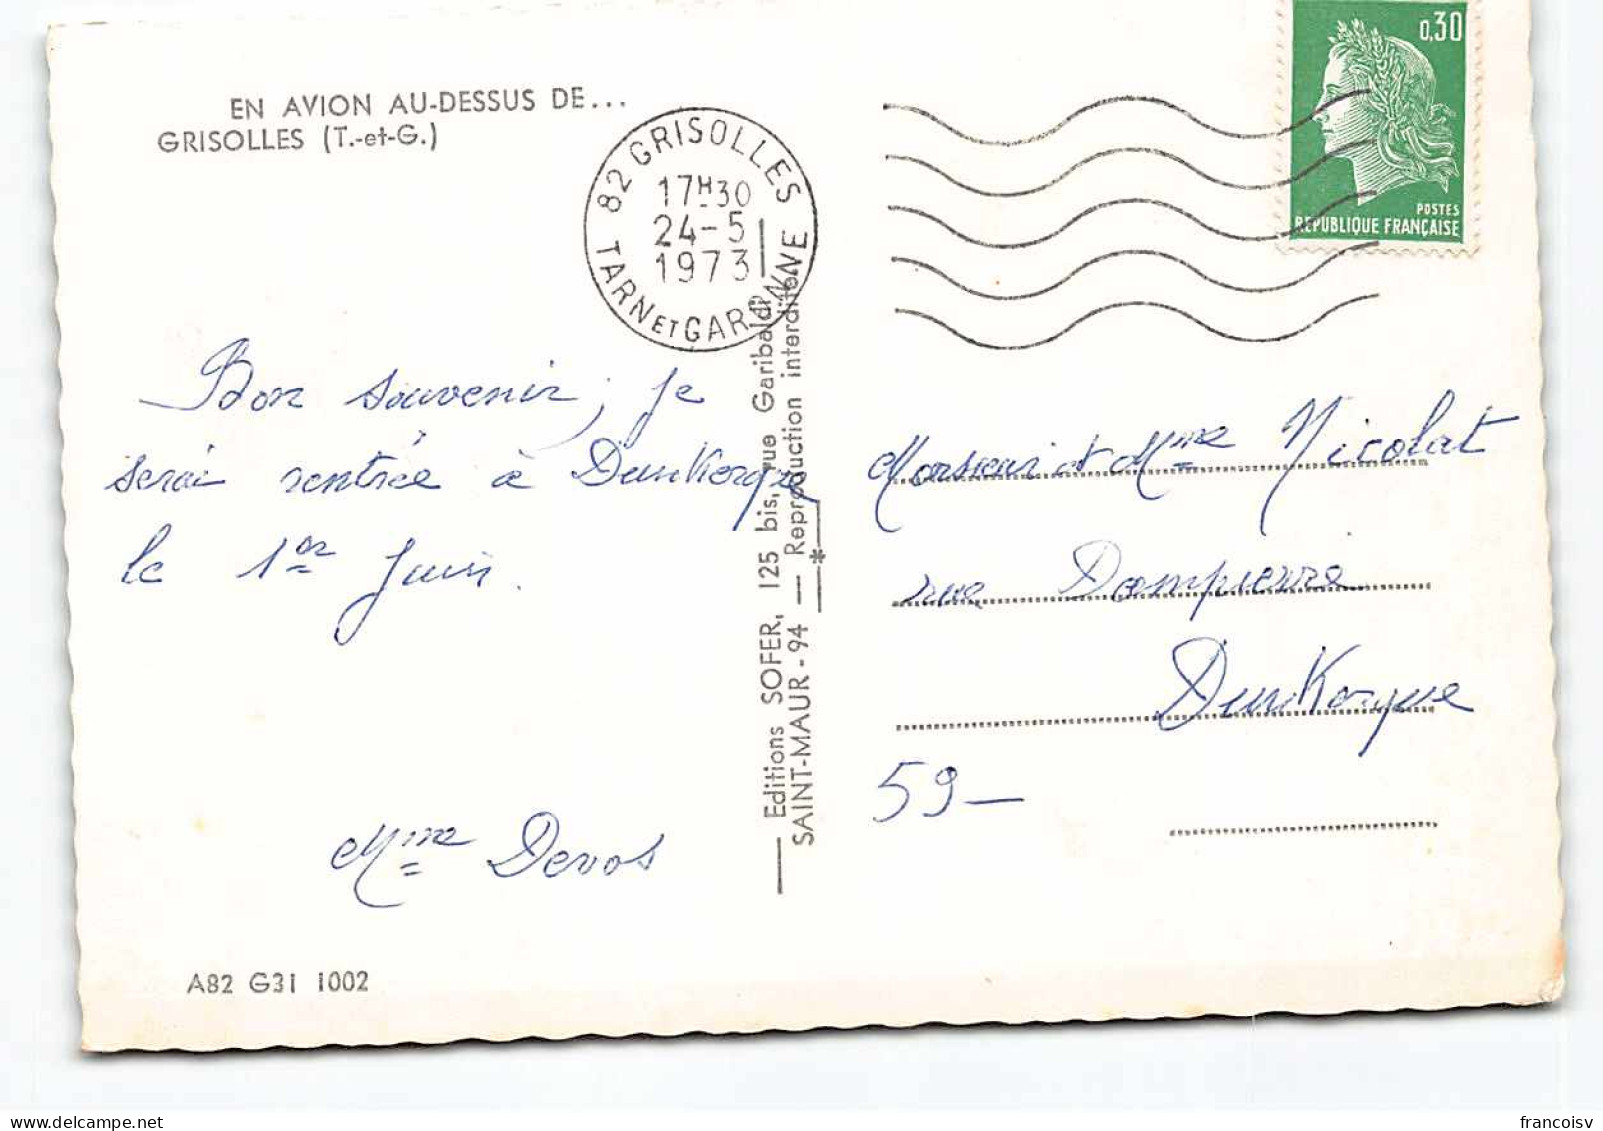 EN AVION AU-DESSUS DE...
GRISOLLES (T.-et-G.)
82 GRISOLLES
17H30
24-5
1973
TARN ET GARONNE
0,30
POSTES
REPUBLIQUE FRANÇAISE
Bon souvenir, je
serai rentrée à Dunkerque
le 1er Juin.
Mme Devos
Editions SOFER, 125 bis, rue Garibaldi
SAINT-MAUR - 94 — Reproduction interdite
Monsieur et Mme Nicolat
rue Dampierre
Dunkerque
59 —
A82 G31 1002
francoisv